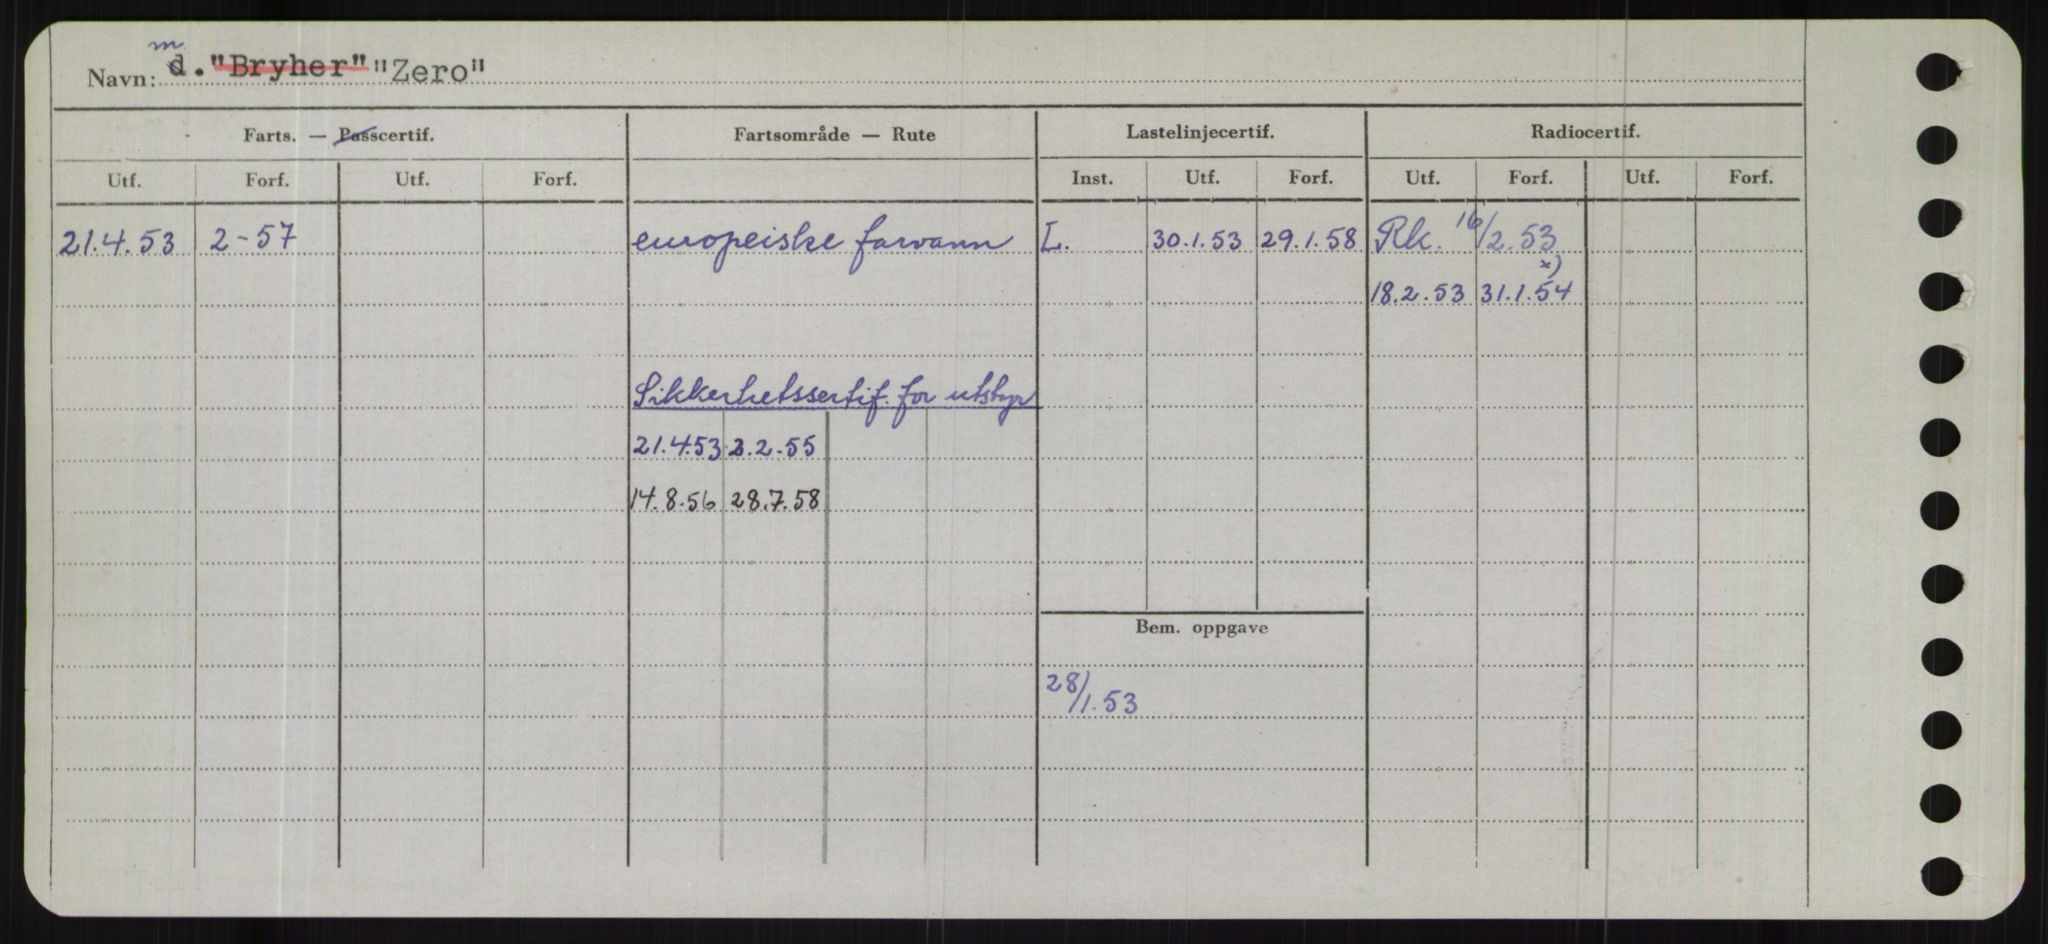 m
Navn: d. "Bryher" "Zero"
Farts. — Passcertif. Fartsområde — Rute Lastelinjecertif. Radiocertif.
Utf. Forf. Utf. Forf. Inst. Utf. Forf. Utf. Forf. Utf. Forf.
21.4.53 2-57 europeiske farvann L. 30.1.53 29.1.58 Rk. 16/2.53
x)
18.2.53 31.1.54
Sikkerhetssertif. for utstyr
21.4.53 2.2.55
14.8.56 28.7.58
Bem. oppgave
28/1.53